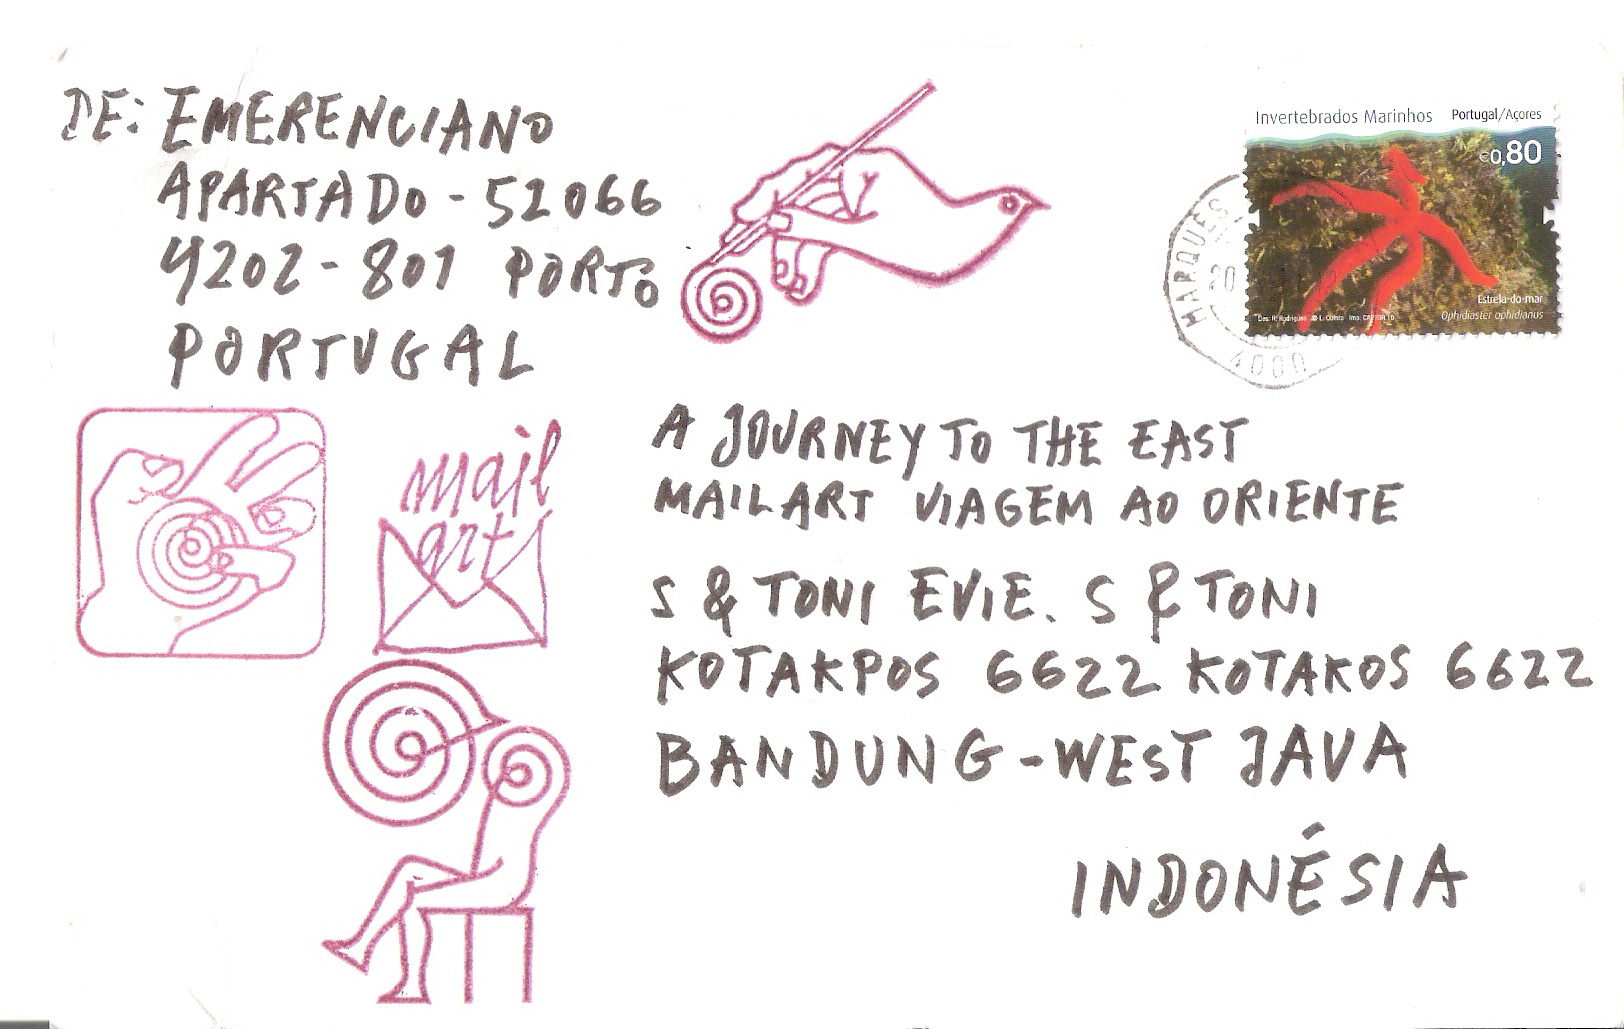 DE: EMERENCIANO
APARTADO - 52066
4202 - 801 PORTO
PORTUGAL
Invertebrados Marinhos Portugal/Açores
€0,80
Estrela-do-mar
Ophidiaster ophidianus
MARQUÊS
20
4000
mail
art
A JOURNEY TO THE EAST
MAILART VIAGEM AO ORIENTE
S & TONI EVIE. S & TONI
KOTAKPOS 6622 KOTAKOS 6622
BANDUNG - WEST JAVA
INDONÉSIA